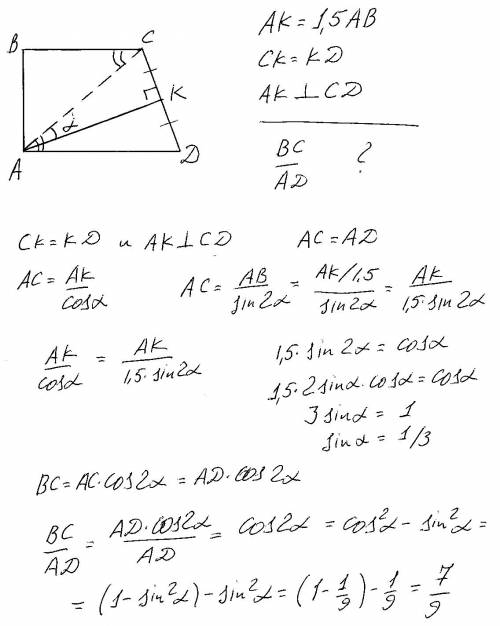 B C K A D α
AK = 1,5AB
CK = KD
AK ⊥ CD
BC/AD ?
CK = KD и AK ⊥ CD AC = AD
AC = AK/cosα AC = AB/sin2α = AK/1,5/sin2α = AK/1,5·sin2α
AK/cosα = AK/1,5·sin2α
1,5·sin2α = cosα
1,5·2sinα·cosα = cosα
3sinα = 1
sinα = 1/3
BC = AC·cos2α = AD·cos2α
BC/AD = AD·cos2α/AD = cos2α = cos²α - sin²α =
= (1 - sin²α) - sin²α = (1 - 1/9) - 1/9 = 7/9